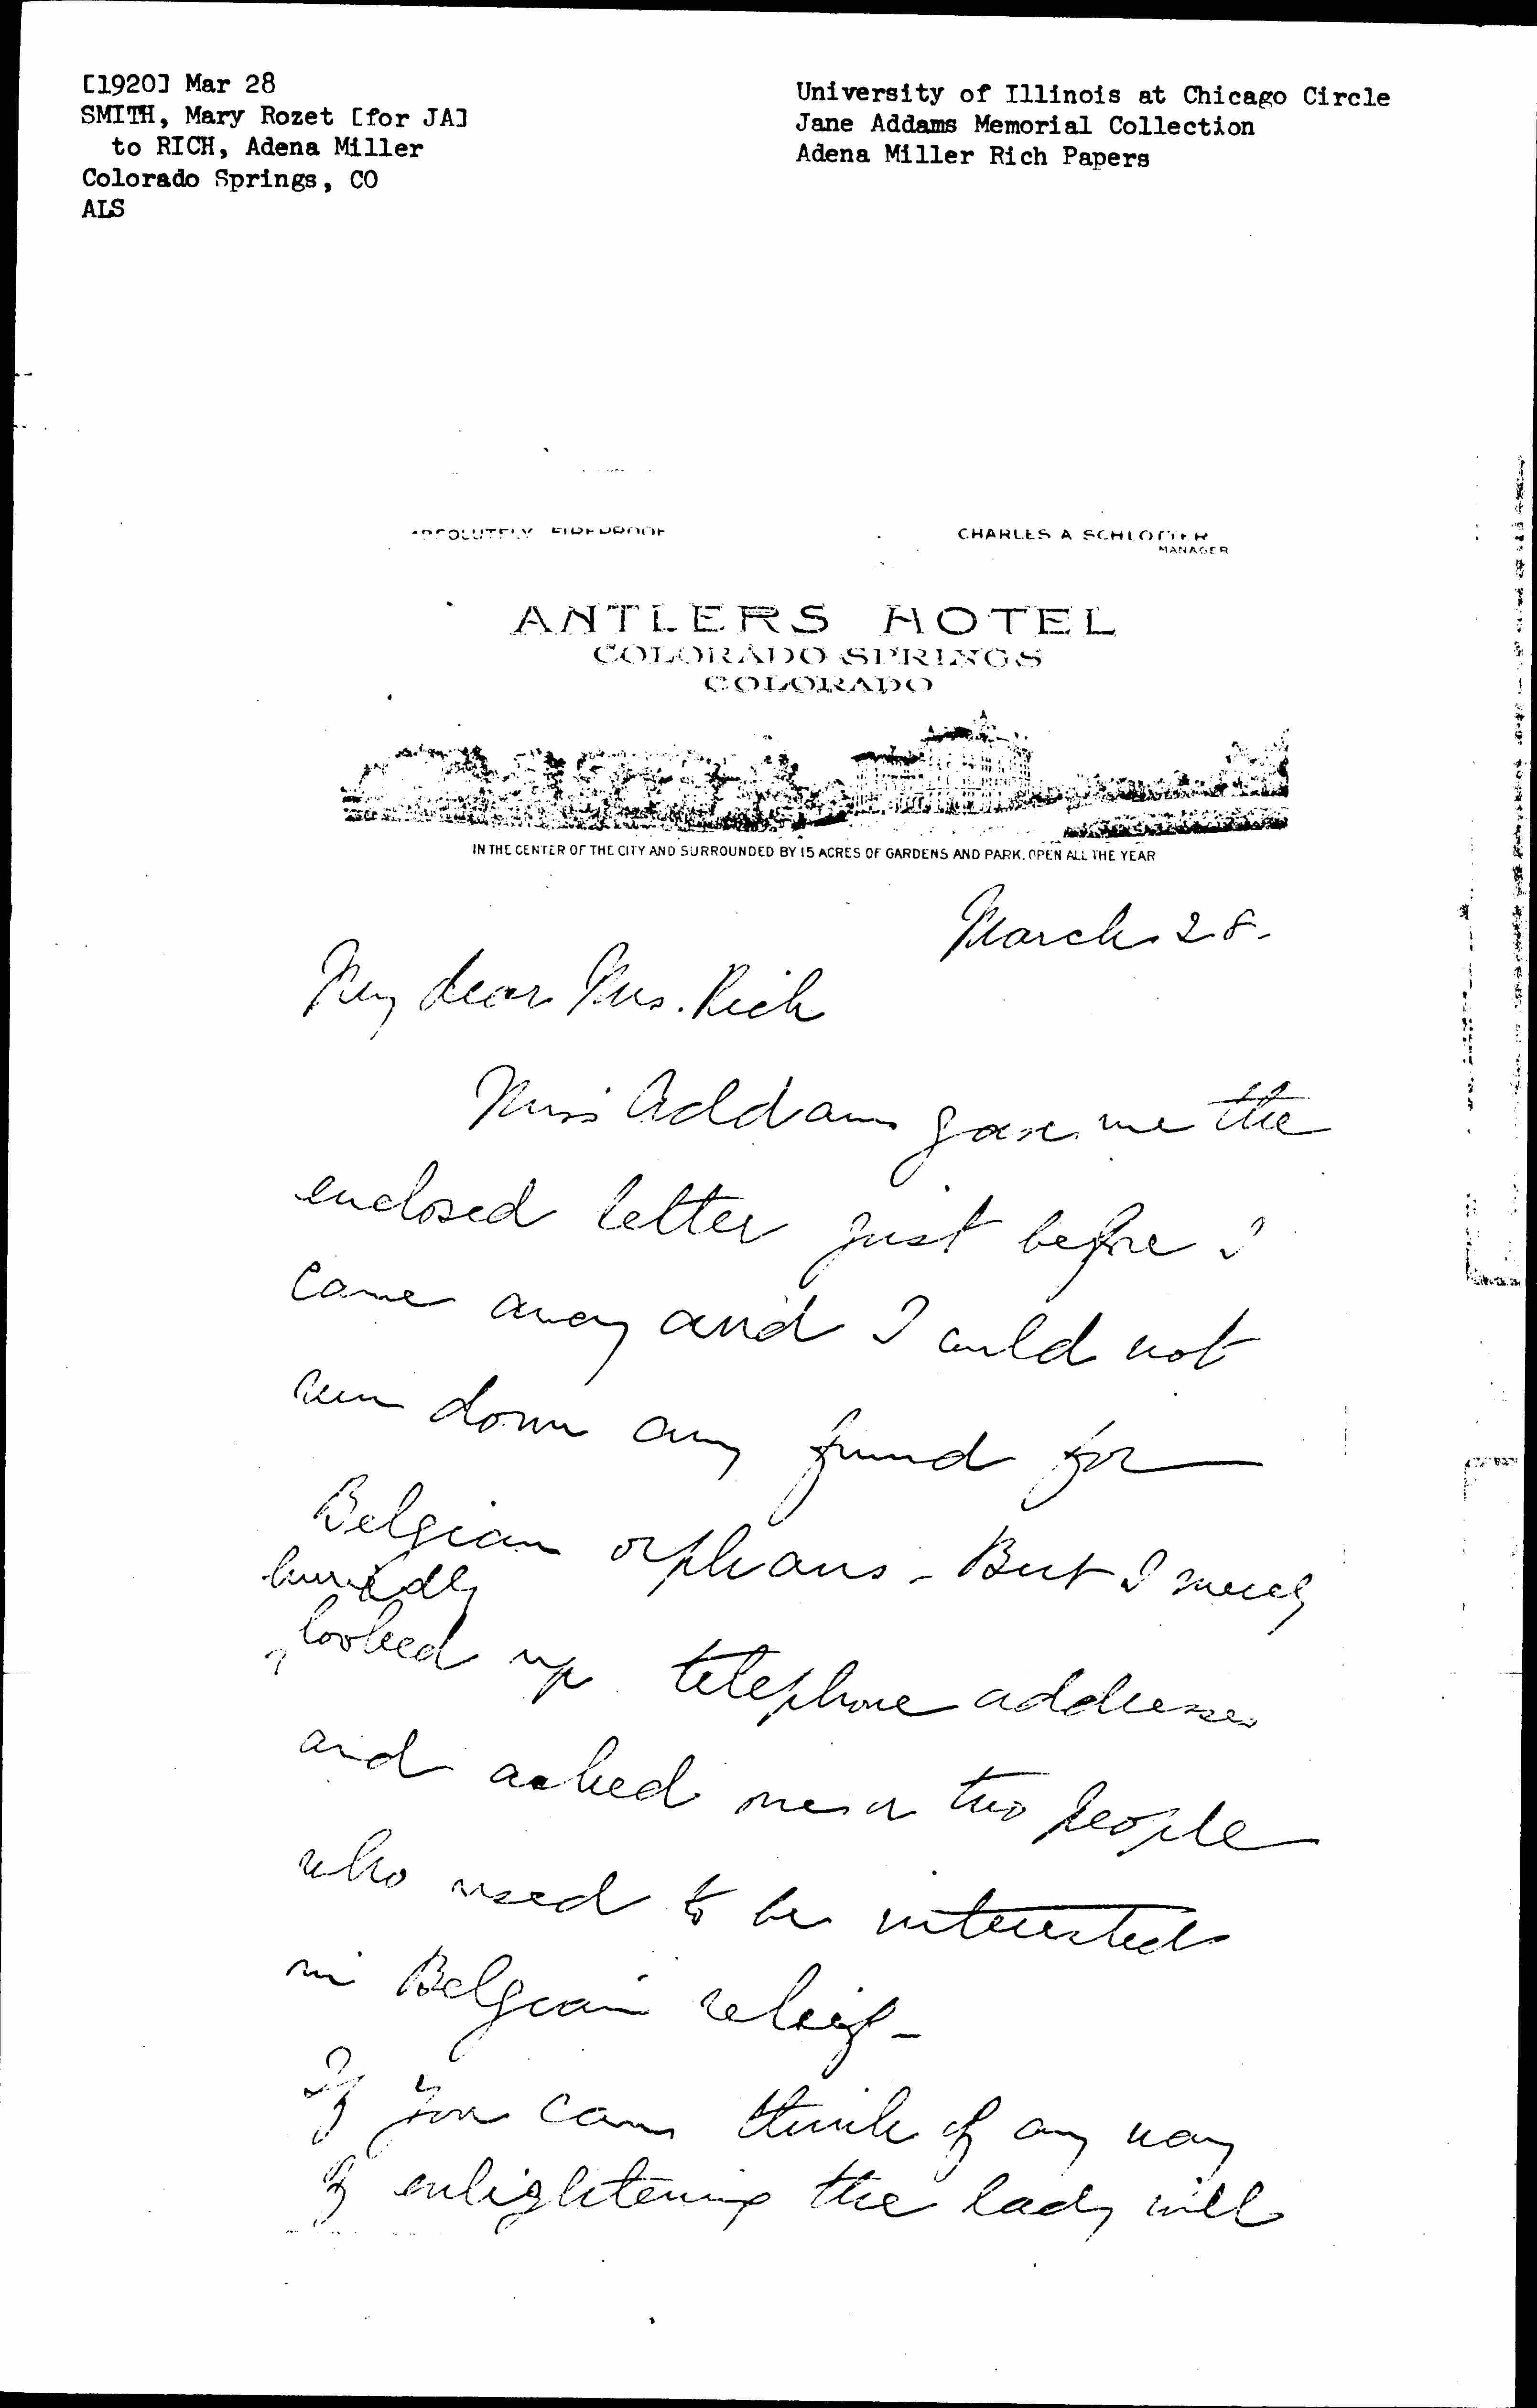 [1920] Mar 28
SMITH, Mary Rozet [for JA]
to RICH, Adena Miller
Colorado Springs, CO
ALS
University of Illinois at Chicago Circle
Jane Addams Memorial Collection
Adena Miller Rich Papers
ABSOLUTELY FIREPROOF
CHARLES A SCHLOTTER
MANAGER
ANTLERS HOTEL
COLORADO SPRINGS
COLORADO
IN THE CENTER OF THE CITY AND SURROUNDED BY 15 ACRES OF GARDENS AND PARK. OPEN ALL THE YEAR
March 28.
My dear Mrs. Rich
Miss Addams gave me the
enclosed letter just before I
came away and I could not
run down any fund for
Belgian orphans - But I merely
hurriedly
looked up telephone addresses
and asked one or two people
who used to be interested
in Belgian relief -
If you can think of any way
of enlightening the lady will